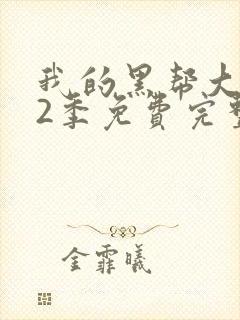 我的黑帮大
2季免费完整
金霏曦